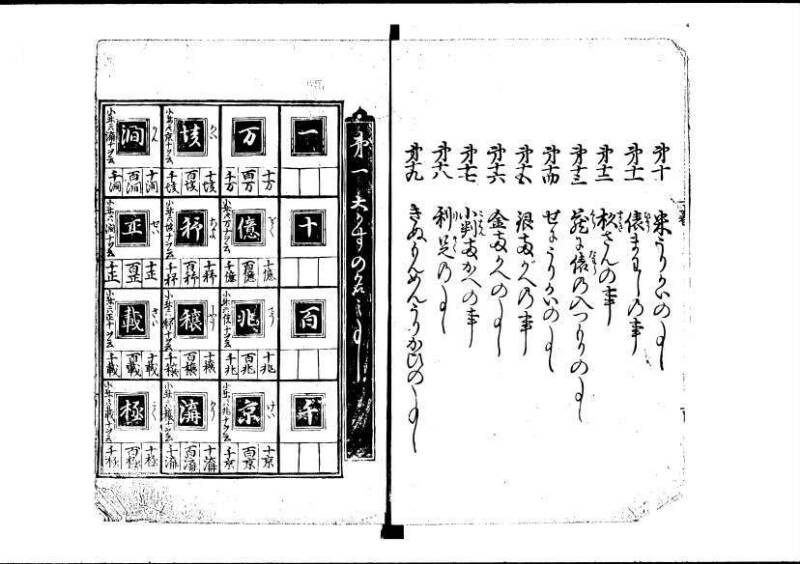 第十 米うりかいの事
第十一 俵まわしの事
第十二 杉さんの事
第十三 蔵に俵の入つもりの事
第十四 ぜにうりかいの事
第十五 銀両かへの事
第十六 金両かへの事
第十七 小判両かへの事
第十八 利足の事
第十九 きぬもんめんうりかひの事
第一 大かずの名の事
一
十
百
千
万
十万 百万 千万
億
十億 百億 千億
兆
十兆 百兆 千兆
京
十京 百京 千京
垓
十垓 百垓 千垓
秭
十秭 百秭 千秭
穣
十穣 百穣 千穣
溝
十溝 百溝 千溝
澗
十澗 百澗 千澗
正
十正 百正 千正
載
十載 百載 千載
極
十極 百極 千極